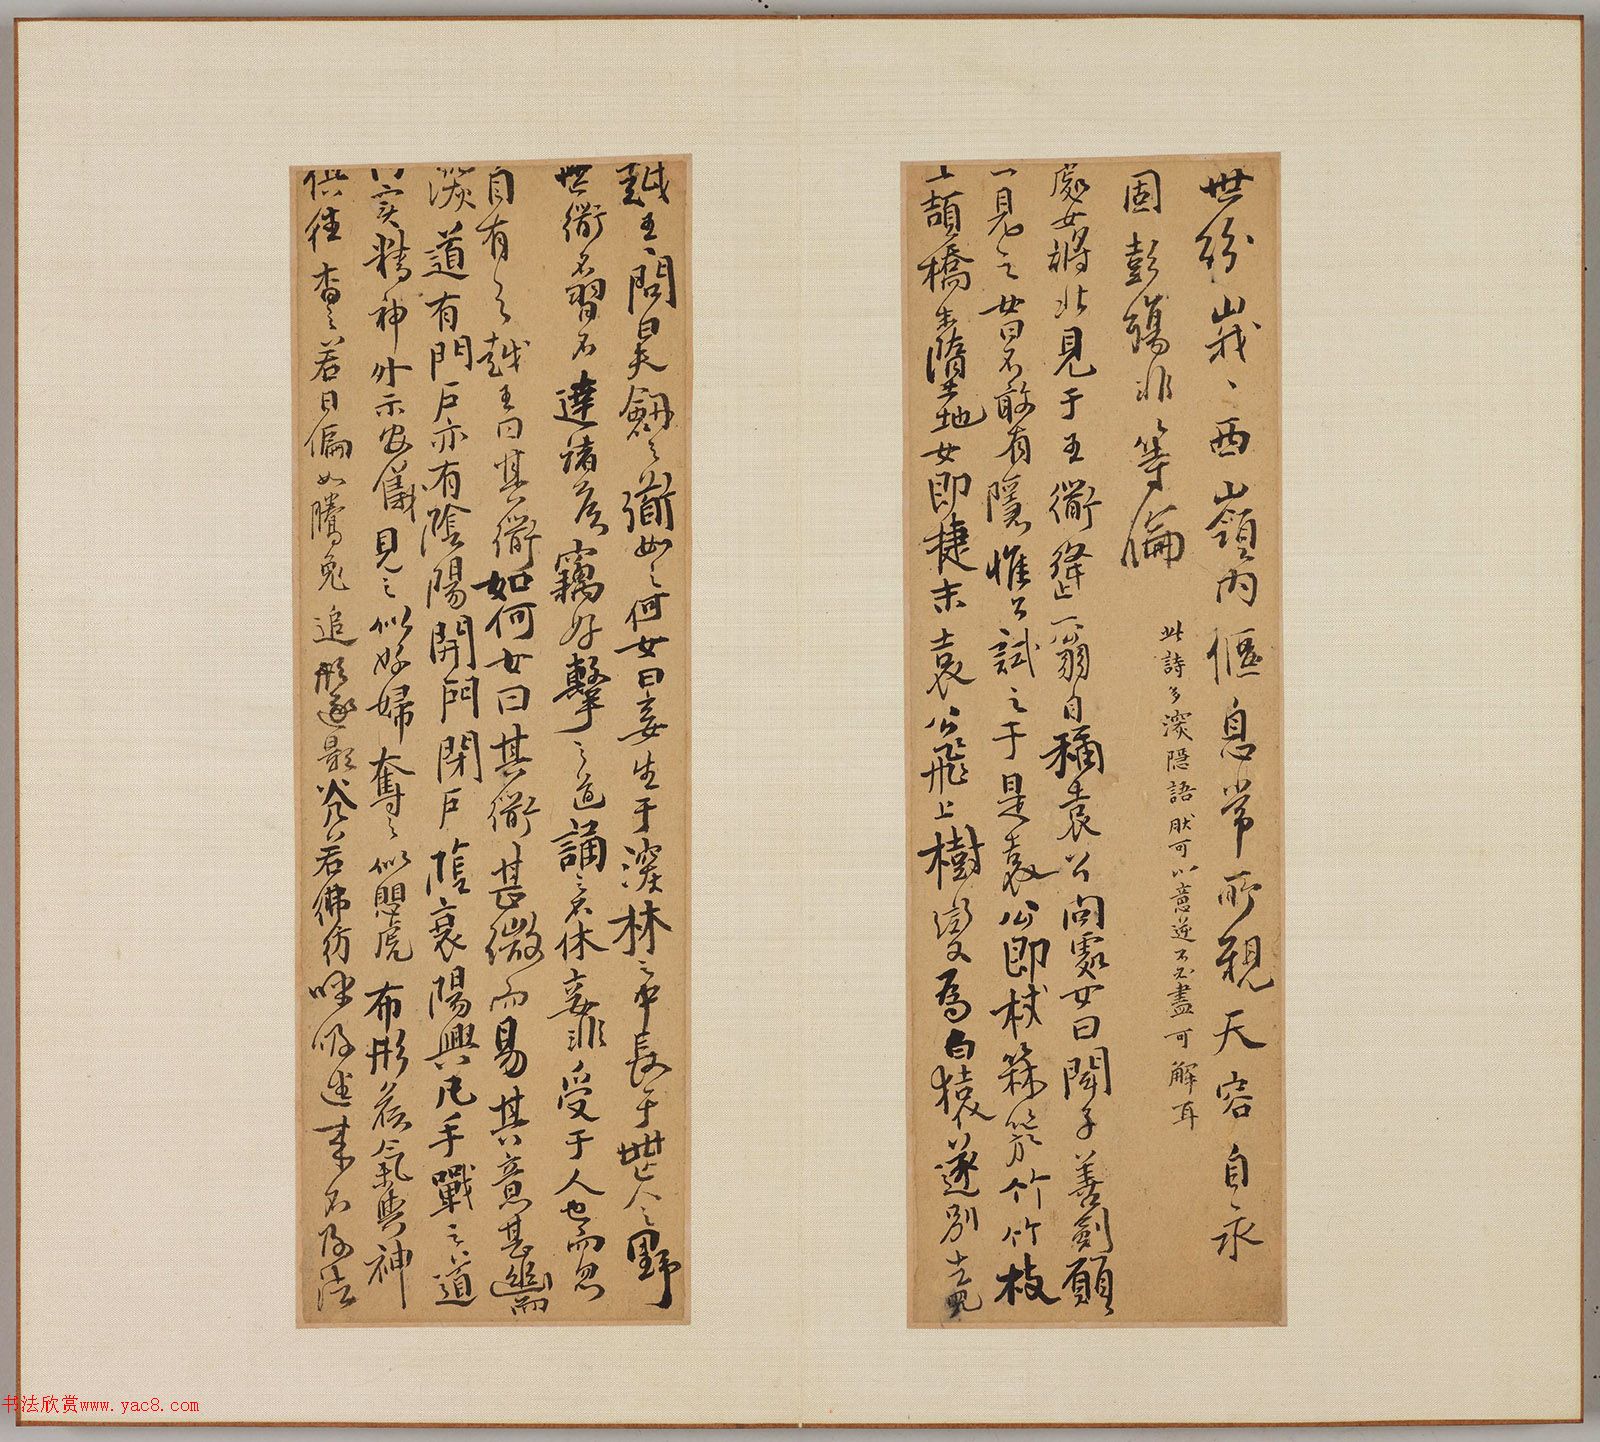 世紛峩〻西嶺内偃息常所親天容自永
固彭殤非等倫
此詩多深隱語狀可以意逆不必盡可解耳
處女將北見于王衟逢一翁自稱袁公問處女曰聞子善劍願
一見之女曰不敢有隱惟公試之于是袁公即杖箖箊竹竹枝
上頡橋末墮地女即捷末袁公飛上樹變爲白猿遂別去見
越王〻問曰夫劍之衟如之何女曰妾生于深林之中長于無人之野
無衟不習不達諸侯竊好擊之道誦之不休妾非受于人也而忽
自有之越王曰其衟如何女曰其衟甚微而易其意甚幽而
深道有門戶亦有陰陽開門閉戶陰衰陽興凡手戰之道
内實精神外示安儀見之似好婦奪之似懼虎布形候氣與神
俱往杳之若日偏如騰兔追形逐影光若彿彷呼吸往來不及法
书法欣赏www.yac8.com